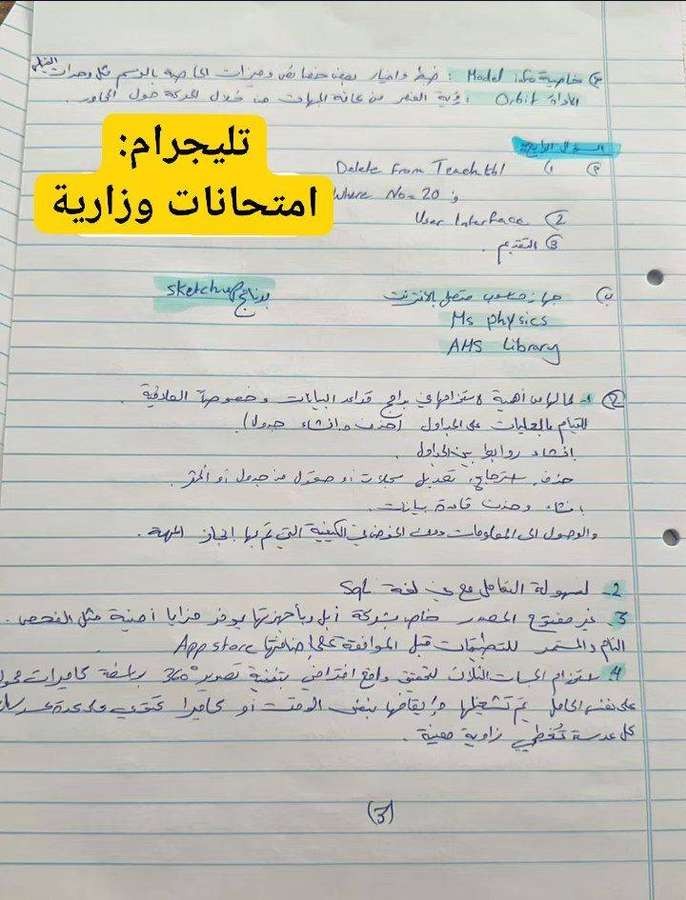 ③ خاصية Model info : ضبط واختيار بعض خصائص وميزات الخاصة بالرسم مثل وحدات القياس
الأداة Orbit رؤية العنصر من كافة الجهات من خلال الحركة حول المحاور.
تليجرام:
امتحانات وزارية
السؤال الرابع:
أ) ١) Delete From Teach tbl
Where No = 20 ;
② User Interface
③ التقديم.
ب) جهاز حاسوب متصل بالانترنت
برنامج sketchup
Ms physics
AMS Library
② ١- لما لها من أهمية لاستخدامها في برامج قواعد البيانات وخصوصاً العلائقية.
القيام بالعمليات على الجداول (حذف وانشاء جدول).
إنشاء روابط بين الجداول.
حذف، استرجاع، تعديل سجلات أو حقول من جدول أو أكثر.
إنشاء وحذف قاعدة بيانات.
والوصول الى المعلومات دون الخوض في الكيفية التي تم بها إنجاز المهمة.
2- لسهولة التعامل مع لغة SQL
3- غير مفتوح المصدر خاص بشركة أبل وبأجهزتها يوفر مزايا أمنية مثل الفحص
التام والمستمر للتطبيقات قبل الموافقة على إضافتها App store
4- استخدام المجسات الثلاث لتحقيق واقع افتراضي بتقنية تصوير 360° بواسطة كاميرات
على نفس الحامل يتم تشغيلها وإيقافها بنفس الوقت أو كاميرا تحتوي على عدة
كل عدسة تغطي زاوية معينة.
(3)